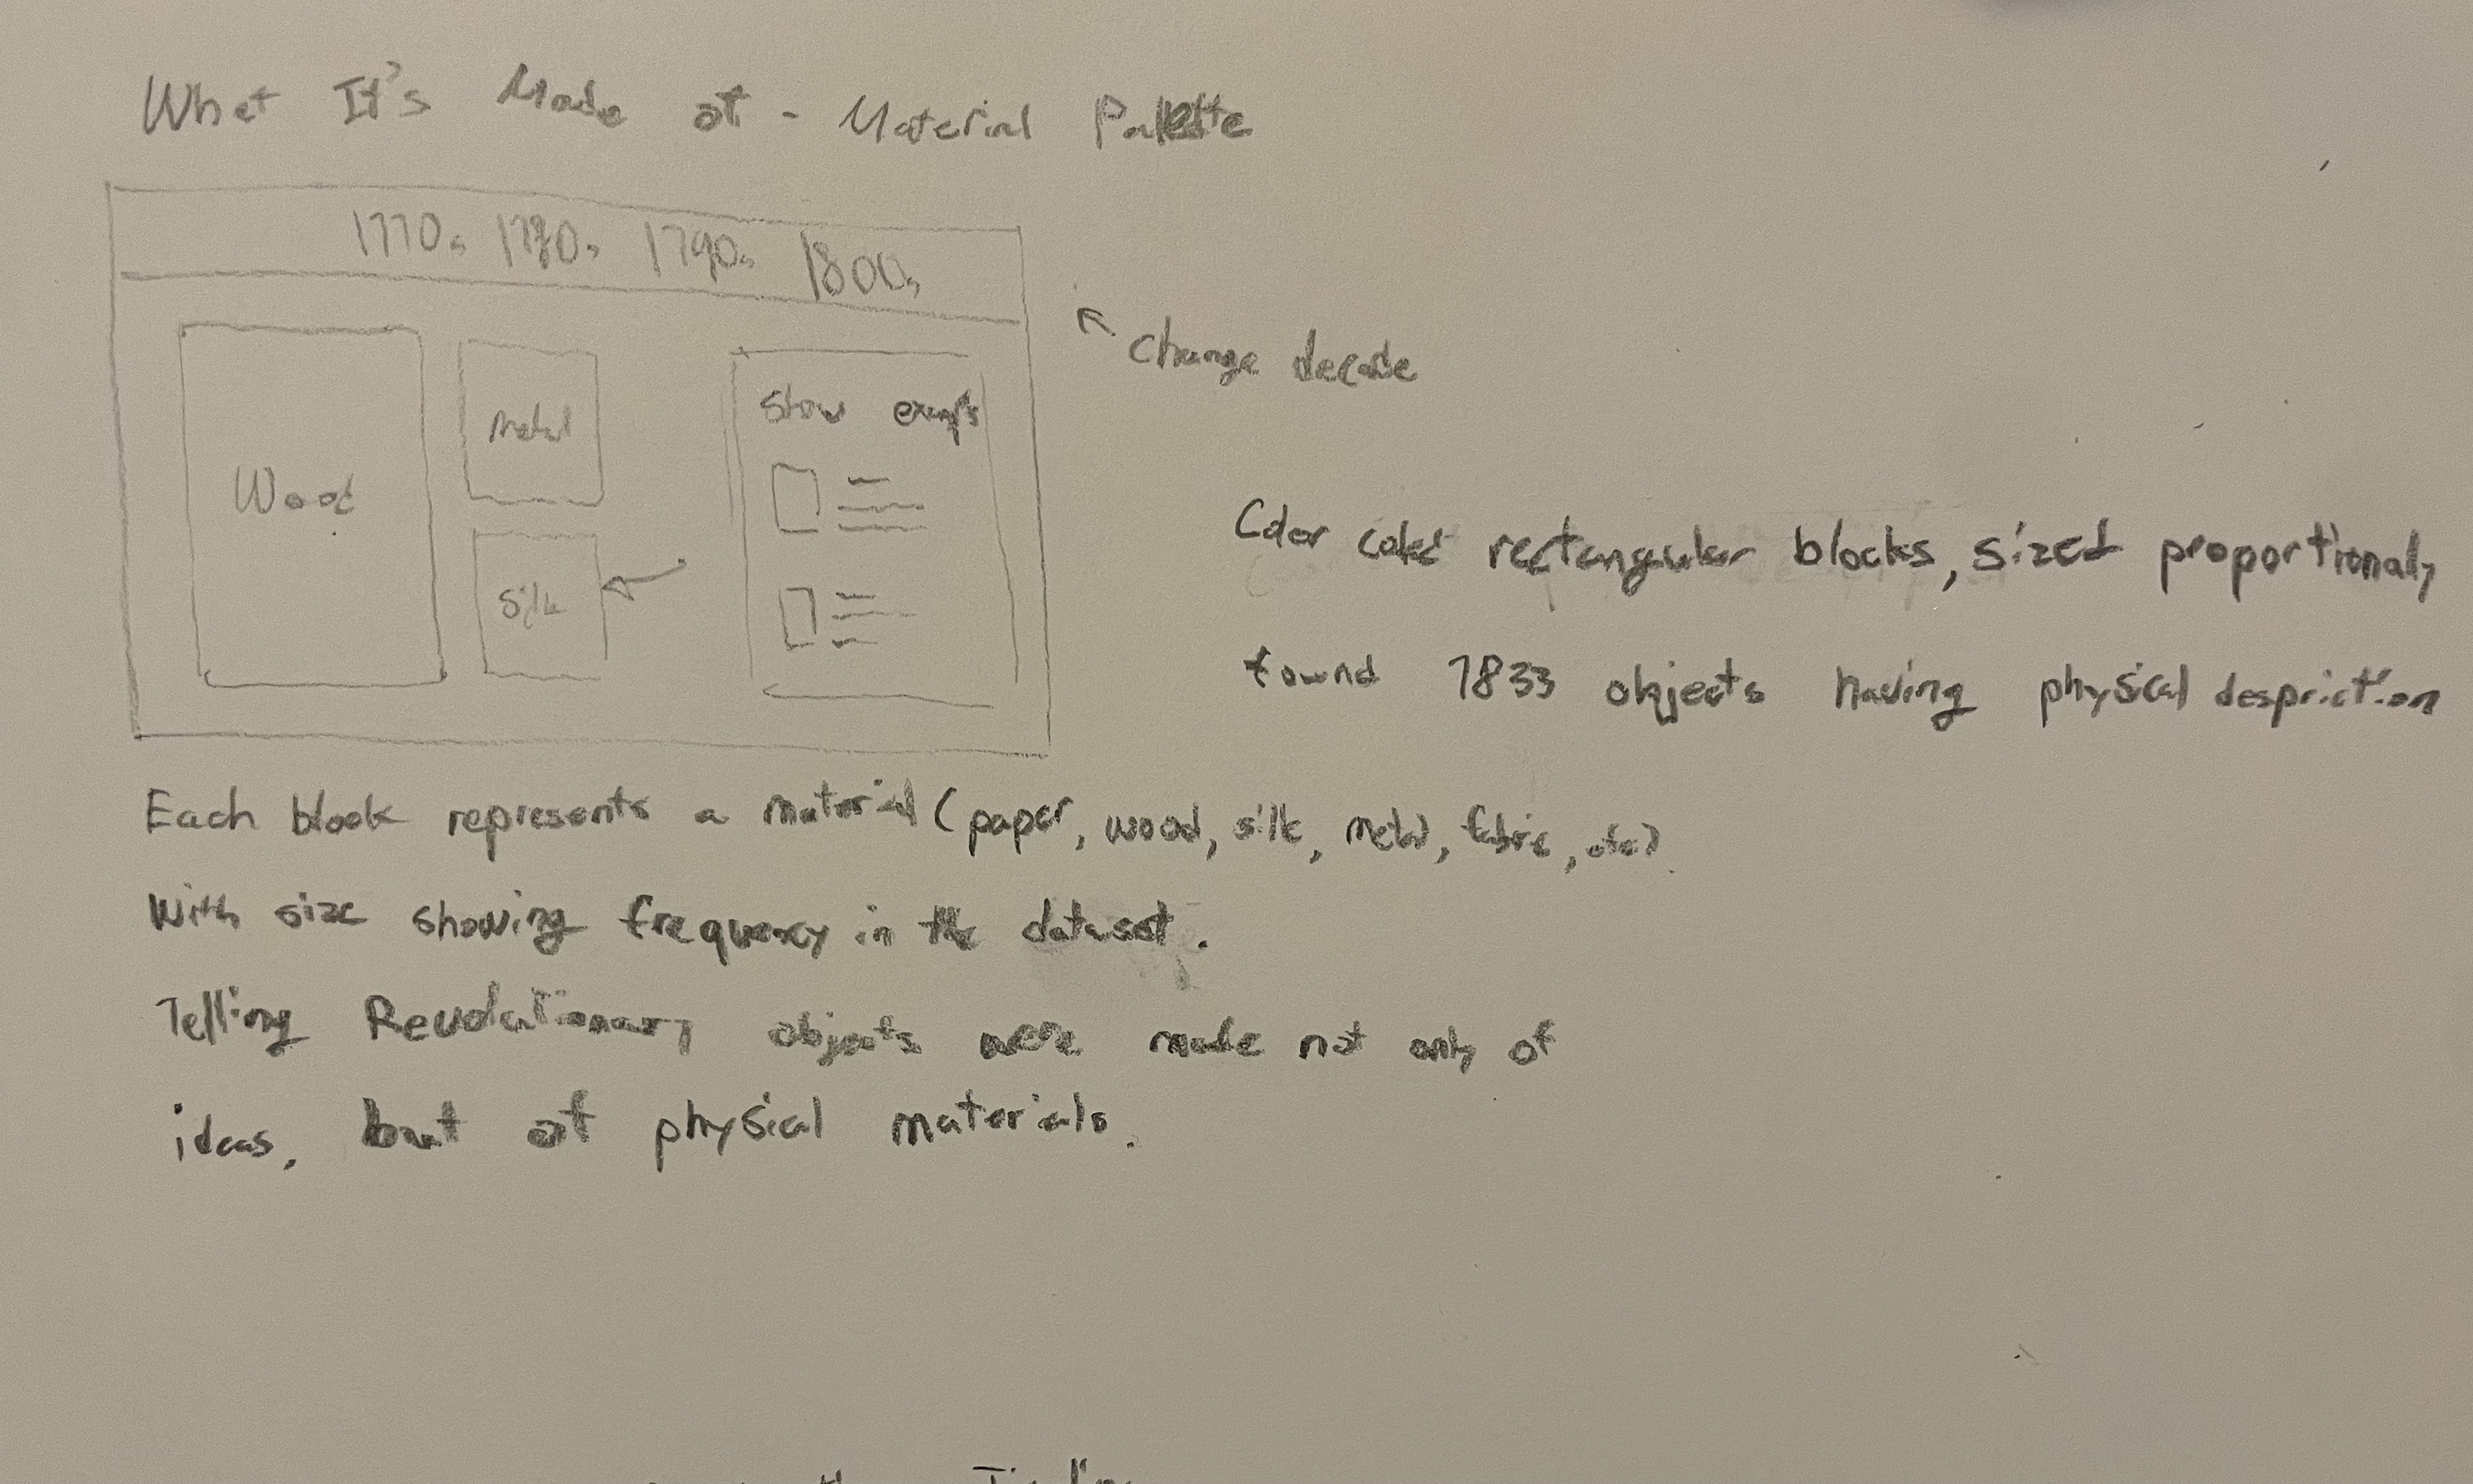 What It's Made of - Material Palette
1770s 1780s 1790s 1800s
Change decade
Wood
Metal
Silk
Show
Color coded rectangular blocks, sized proportionaly
found 1833 objects having physical despriction
Each block represents a material (paper, wood, silk, metal, fabric, etc)
With size showing frequency in the dataset.
Telling Revolutionary objects were made not only of
ideas, but of physical materials.